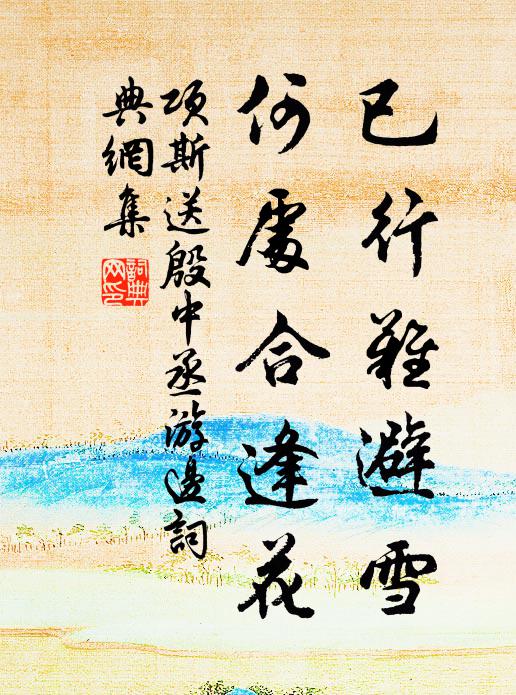 已行難避雪
何處合逢花
項斯送殷中丞游边詞
典網集
詞典
网印